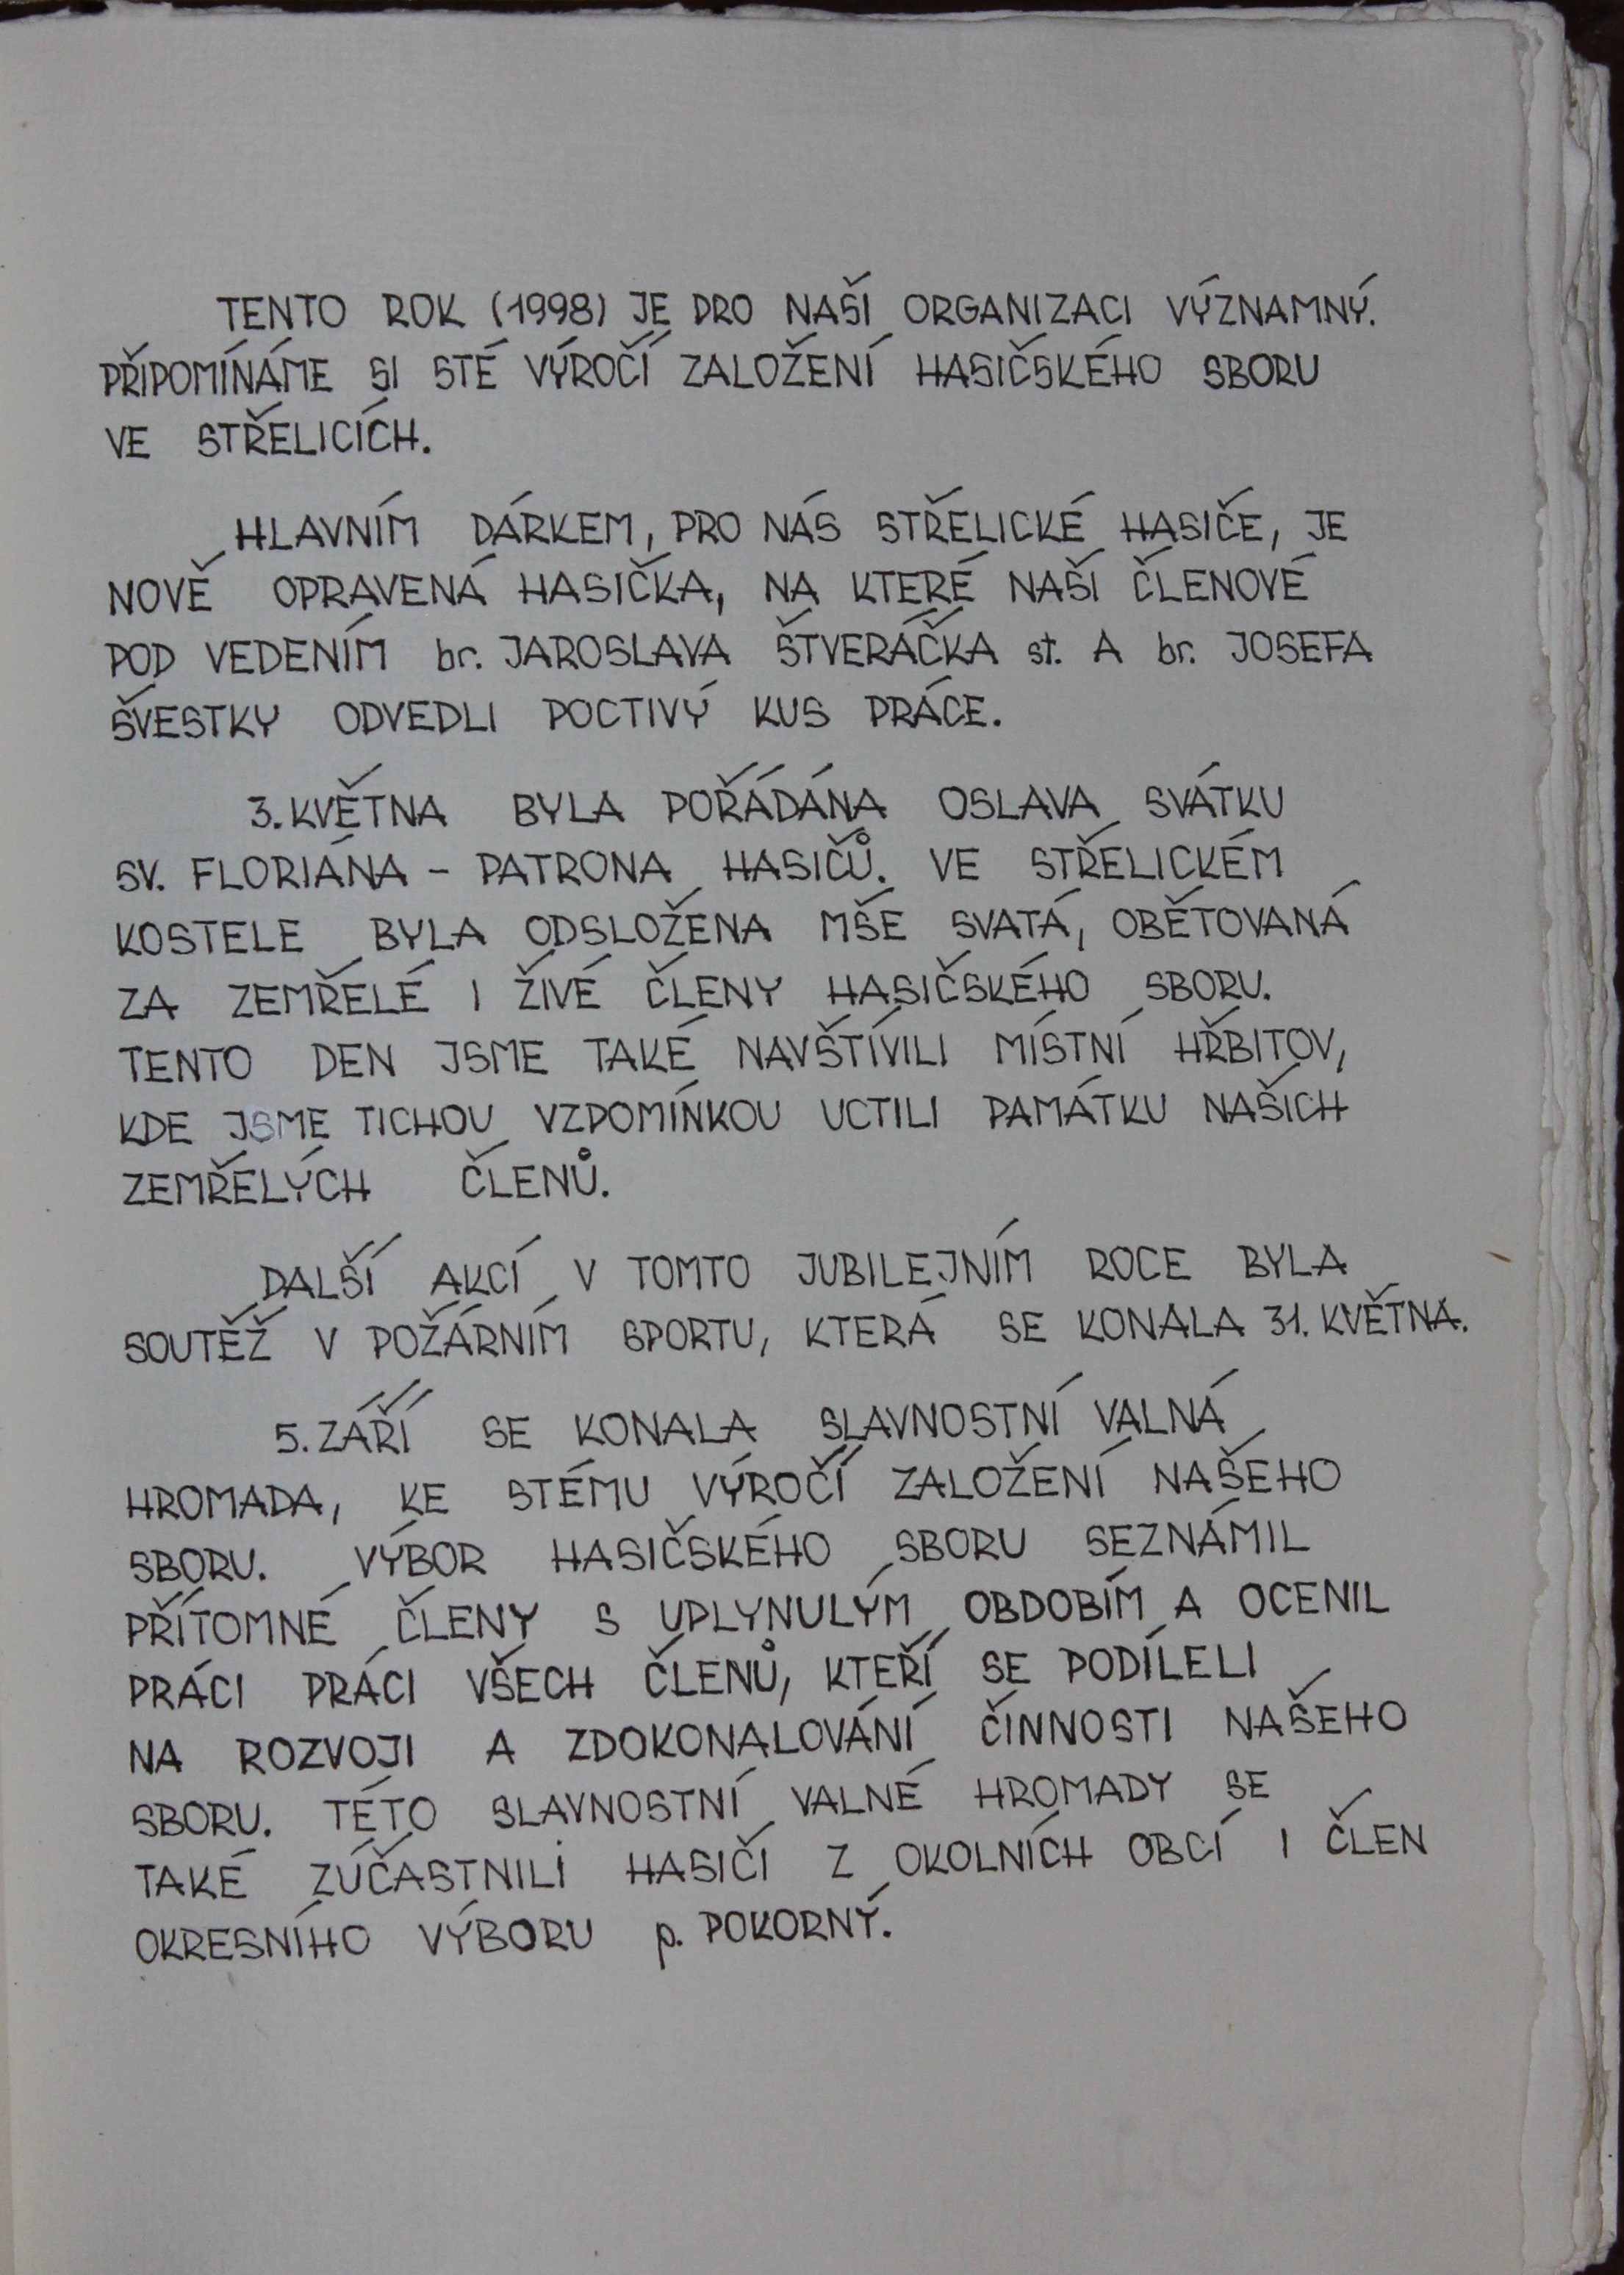 TENTO ROK (1998) JE PRO NAŠI ORGANIZACI VÝZNAMNÝ.
PŘIPOMÍNÁME SI STÉ VÝROČÍ ZALOŽENÍ HASIČSKÉHO SBORU
VE STŘELICÍCH.
HLAVNÍM DÁRKEM, PRO NÁS STŘELICKÉ HASIČE, JE
NOVĚ OPRAVENÁ HASIČKA, NA KTERÉ NAŠI ČLENOVÉ
POD VEDENÍM br. JAROSLAVA ŠTVERÁČKA st. A br. JOSEFA
ŠVESTKY ODVEDLI POCTIVÝ KUS PRÁCE.
3. KVĚTNA BYLA POŘÁDÁNA OSLAVA SVÁTKU
SV. FLORIÁNA - PATRONA HASIČŮ. VE STŘELICKÉM
KOSTELE BYLA ODSLOŽENA MŠE SVATÁ, OBĚTOVANÁ
ZA ZEMŘELÉ I ŽIVÉ ČLENY HASIČSKÉHO SBORU.
TENTO DEN JSME TAKÉ NAVŠTÍVILI MÍSTNÍ HŘBITOV,
KDE JSME TICHOU VZPOMÍNKOU UCTILI PAMÁTKU NAŠICH
ZEMŘELÝCH ČLENŮ.
DALŠÍ AKCÍ V TOMTO JUBILEJNÍM ROCE BYLA
SOUTĚŽ V POŽÁRNÍM SPORTU, KTERÁ SE KONALA 31. KVĚTNA.
5. ZÁŘÍ SE KONALA SLAVNOSTNÍ VALNÁ
HROMADA, KE STÉMU VÝROČÍ ZALOŽENÍ NAŠEHO
SBORU. VÝBOR HASIČSKÉHO SBORU SEZNÁMIL
PŘÍTOMNÉ ČLENY S UPLYNULÝM OBDOBÍM A OCENIL
PRÁCI PRÁCI VŠECH ČLENŮ, KTEŘÍ SE PODÍLELI
NA ROZVOJI A ZDOKONALOVÁNÍ ČINNOSTI NAŠEHO
SBORU. TÉTO SLAVNOSTNÍ VALNÉ HROMADY SE
TAKÉ ZÚČASTNILI HASIČI Z OKOLNÍCH OBCÍ I ČLEN
OKRESNÍHO VÝBORU p. POKORNÝ.